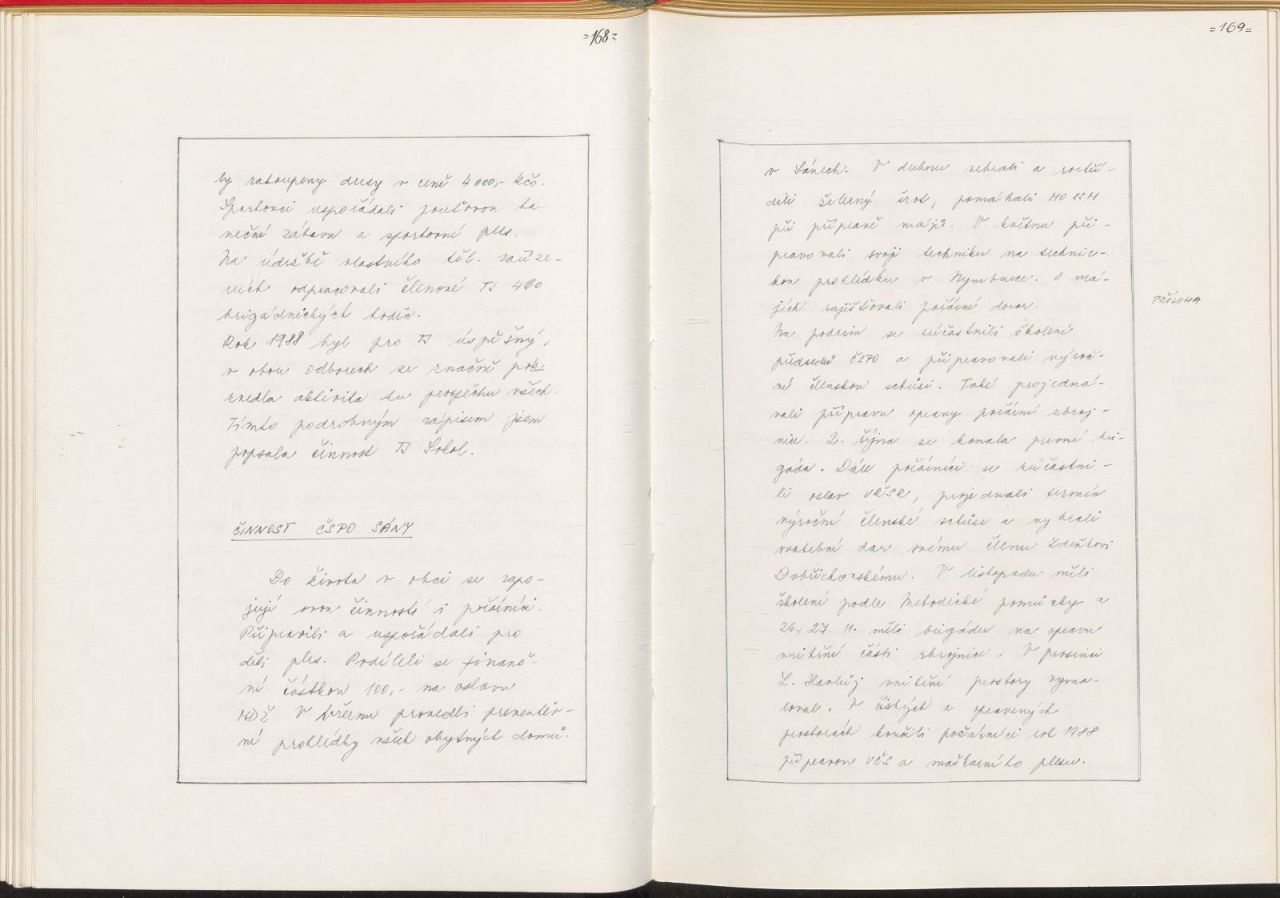 =168=
by zakoupeny dresy v ceně 4 000,- Kčs.
Sportovci uspořádali pouťovou ta-
neční zábavu a sportovní ples.
Na údržbě vlastního těl. zaříze-
ních odpracovali členové TJ 460
brigádnických hodin.
Rok 1988 byl pro TJ úspěšný,
v obou odborech se značně
zvedla aktivita ku prospěchu všech.
Tímto podrobným zápisem jsem
popsala činnost TJ Sokol.
ČINNOST ČSPO SÁNY
Do života v obci se zapo-
jují svou činností i požárníci.
Připravili a uspořádali pro
děti ples. Podíleli se finanč-
ní částkou 100,- na oslavu
MDŽ. V březnu provedli preventiv-
ní prohlídky všech obytných domů.
=169=
v Sánech. V dubnu sebrali a roztří-
dili železný šrot, pomáhali MO SSM
při přípravě májí. V květnu při-
pravovali svoji techniku na technic-
kou prohlídku v Nymburce. O má-
jích zajišťovali požární dozor.
Na podzim se zúčastnili školení
předsedů ČSPO a připravovali výroč-
ní členskou schůzi. Také projedná-
vali přípravu opravy požární zbroj-
nice. 2. října se konala první bri-
gáda. Dále požárníci se zúčastni-
li oslav VŘSR, projednali termín
výroční členské schůze a vybrali
svatební dar svému členu Zdeňkovi
Dobřichovskému. V listopadu měli
školení podle Metodické pomůcky a
26., 27. 11. měli brigádu na opravu
vnitřní části zbrojnice. V prosinci
L. vnitřní prostory vyma-
loval. V čistých a opravených
prostorách končili požárníci rok 1988
přípravou VČS a maškarního plesu.
PŘÍLOHA